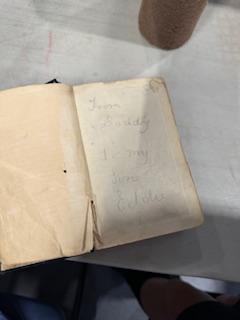 From
Daddy
To my
son
Eddie